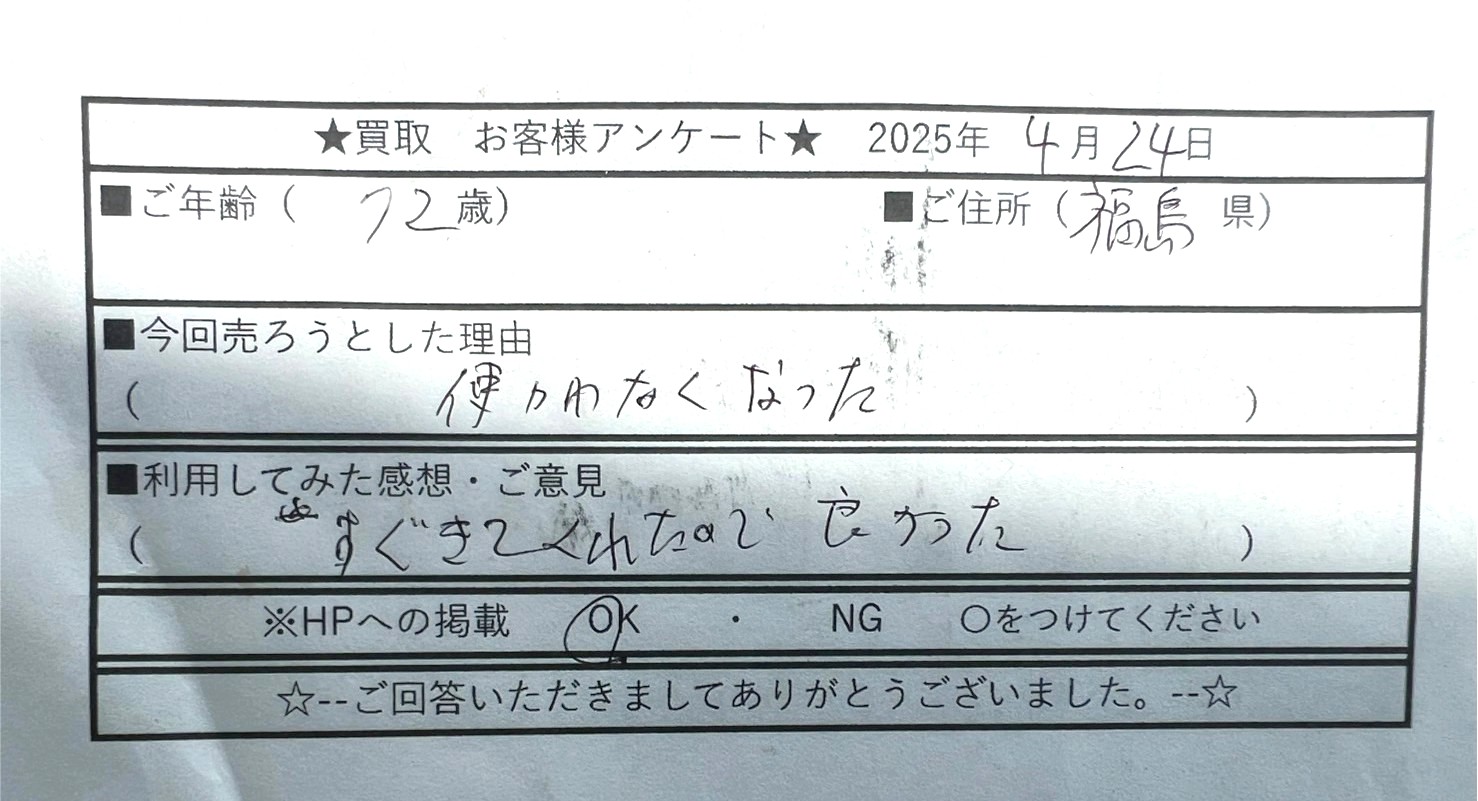 ★買取 お客様アンケート★ 2025年 4月24日
■ご年齢( 72歳) ■ご住所(福島 県)
■今回売ろうとした理由
( 使われなくなった )
■利用してみた感想・ご意見
( すぐきてくれたので 良かった )
※HPへの掲載 OK ・ NG ○をつけてください
☆--ご回答いただきましてありがとうございました。--☆